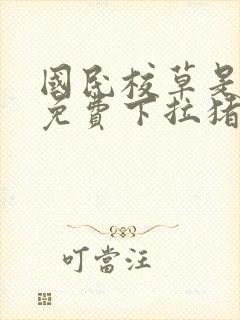 國民校草是
免費下拉豬
叮當汪